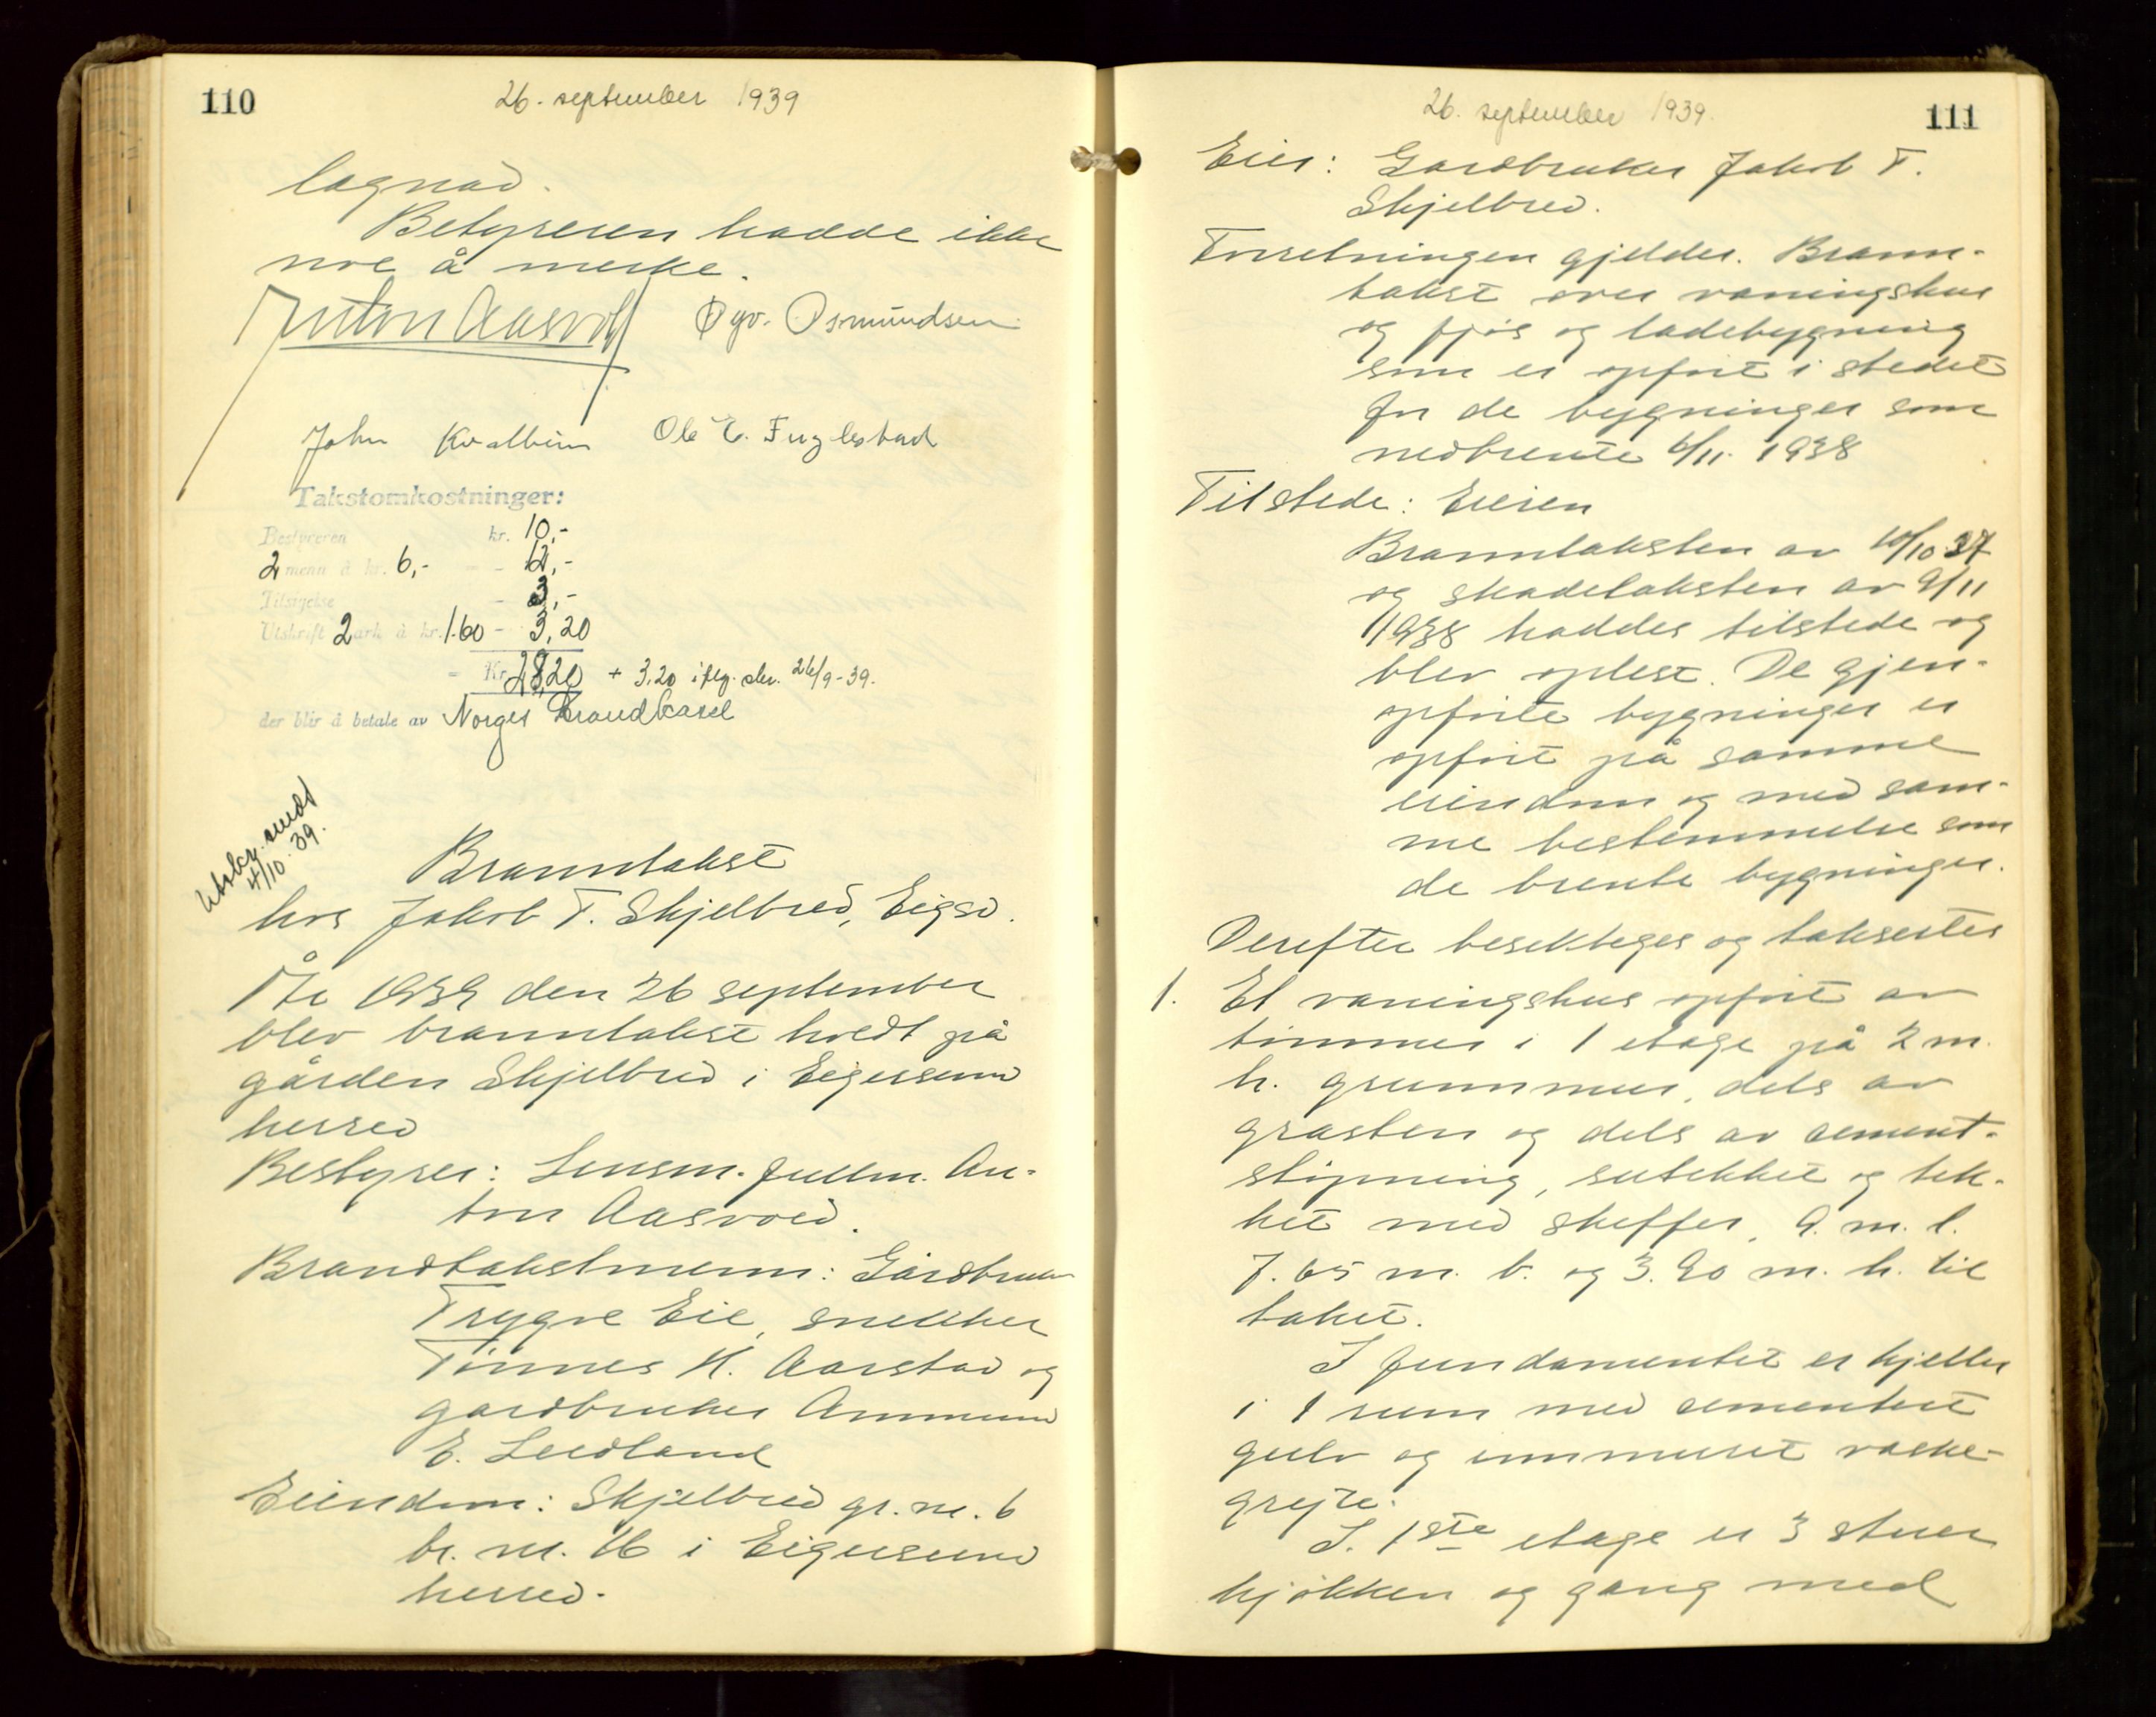 110
26. september 1939
lagnad.
Bestyreren hadde ikke
noe å merke.
Anton Aasvold Øyv. Osmundsen
John Kvalheim Ole E. Fuglestad
Takstomkostninger:
Bestyreren kr. 10,-
2 menn à kr. 6,- - - 12,-
Tilsigelse - 3,-
Utskrift 2 ark à kr. 1.60 - 3,20
= Kr. 28,20 + 3.20 iflg. skr. 26/9-39.
der blir å betale av Norges Brandkasse
Utskr. sendt
4/10 39.
Branntakst
hos Jakob T. Skjelbred, Eigsd.
År 1939 den 26 september
blev branntakst holdt på
gården Skjelbred i Eigersund
herred
Bestyrer: Lensm. fullm. An-
ton Aasvold.
Brandtakstmenn: Gårdbruker
Trygve Eie, snekker
Tønnes H. Aarstad og
gardbruker Ammund
E. Leidland
Eiendom: Skjelbred gr. nr. 6
br. nr. 16 i Eigersund
herred.
111
26. september 1939.
Eier: Gardbruker Jakob T.
Skjelbred.
Forretningen gjelder. Brann-
takst over våningshus
og fjøs og ladebygning
som er opført i stedet
for de bygninger som
nedbrente 6/11. 1938
Tilstede: Eieren
Branntaksten av 10/10 37
og skadetaksten av 9/11
1938 haddes tilstede og
blev oplest. De gjen-
opførte bygninger er
opført på samme
eiendom og med sam-
me bestemmelse som
de brente bygninger.
Derefter besiktiges og takseres
1. Et våningshus opført av
tømmer i 1 etage på 2 m.
h. grunnmur, dels av
gråsten og dels av cement-
støpning, sutekket og tek-
ket med skeffer, 9. m. l.
7.65 m. b. og 3.90 m. h. til
taket.
I fundamentet er kjeller
i 1 rum med cementert
gulv og innmuret vaske-
grejte.
I. 1ste etage er 3 stuer
kjøkken og gang med